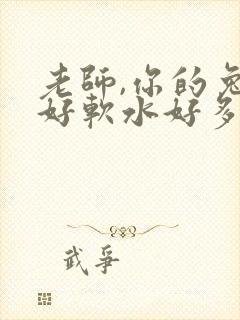 老師,你的兔
好軟水好多
武爭